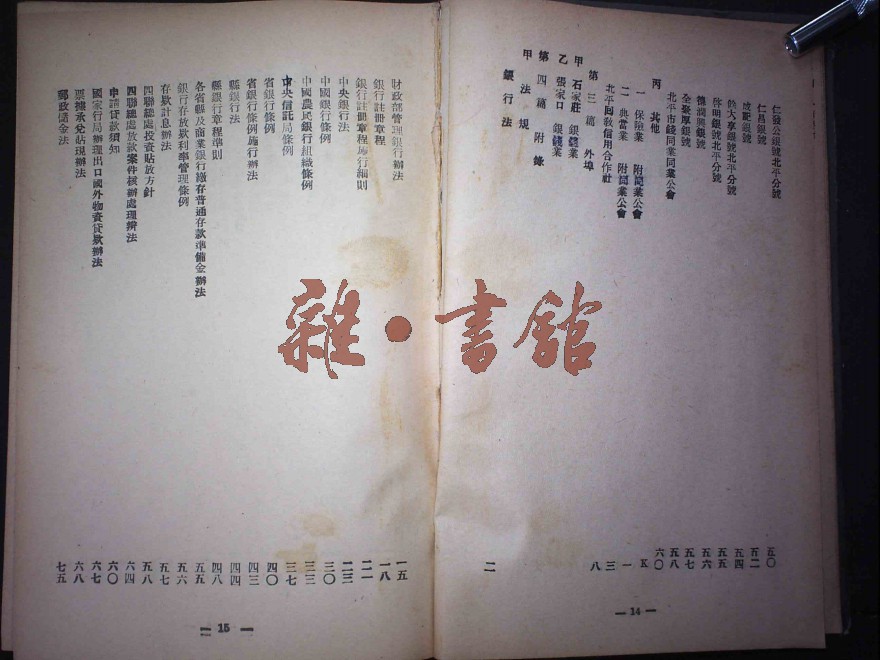 仁發公銀號北平分號
仁昌銀號
銀號
餘大亨銀號北平分號
啓明銀號北平分號
德潤興銀號
全聚厚銀號
北平市錢同業同業公會
丙 其他
一 保險業 附同業公會
二 典當業 附同業公會
北平回教信用合作社
第三篇 外埠
甲 石家莊 銀錢業
乙 張家口 銀錢業
第四篇 附錄
甲 法規
銀行法
五〇
五二
五四
五五
五六
五七
五八
六〇
五
一
三
八
二
— 14 —
財政部管理銀行辦法 一五
銀行註冊章程 一八
銀行註冊章程施行細則 二一
中央銀行法 二三
中國銀行條例 三〇
中國農民銀行組織條例 三三
中央信託局條例 三七
省銀行條例 四〇
省銀行條例施行辦法 四三
縣銀行法 四四
縣銀行章程準則 四八
各省縣及商業銀行繳存普通存款準備金辦法 五五
銀行存放款利率管理條例 五六
存款計息辦法 五七
四聯總處投資貼放方針 五八
四聯總處放款案件核辦處理辦法 六四
申請貸款須知 六〇
國家行局辦理出口國外物資貸款辦法 六七
票據承兌貼現辦法 六八
郵政儲金法 七五
— 15 —
雜·書館